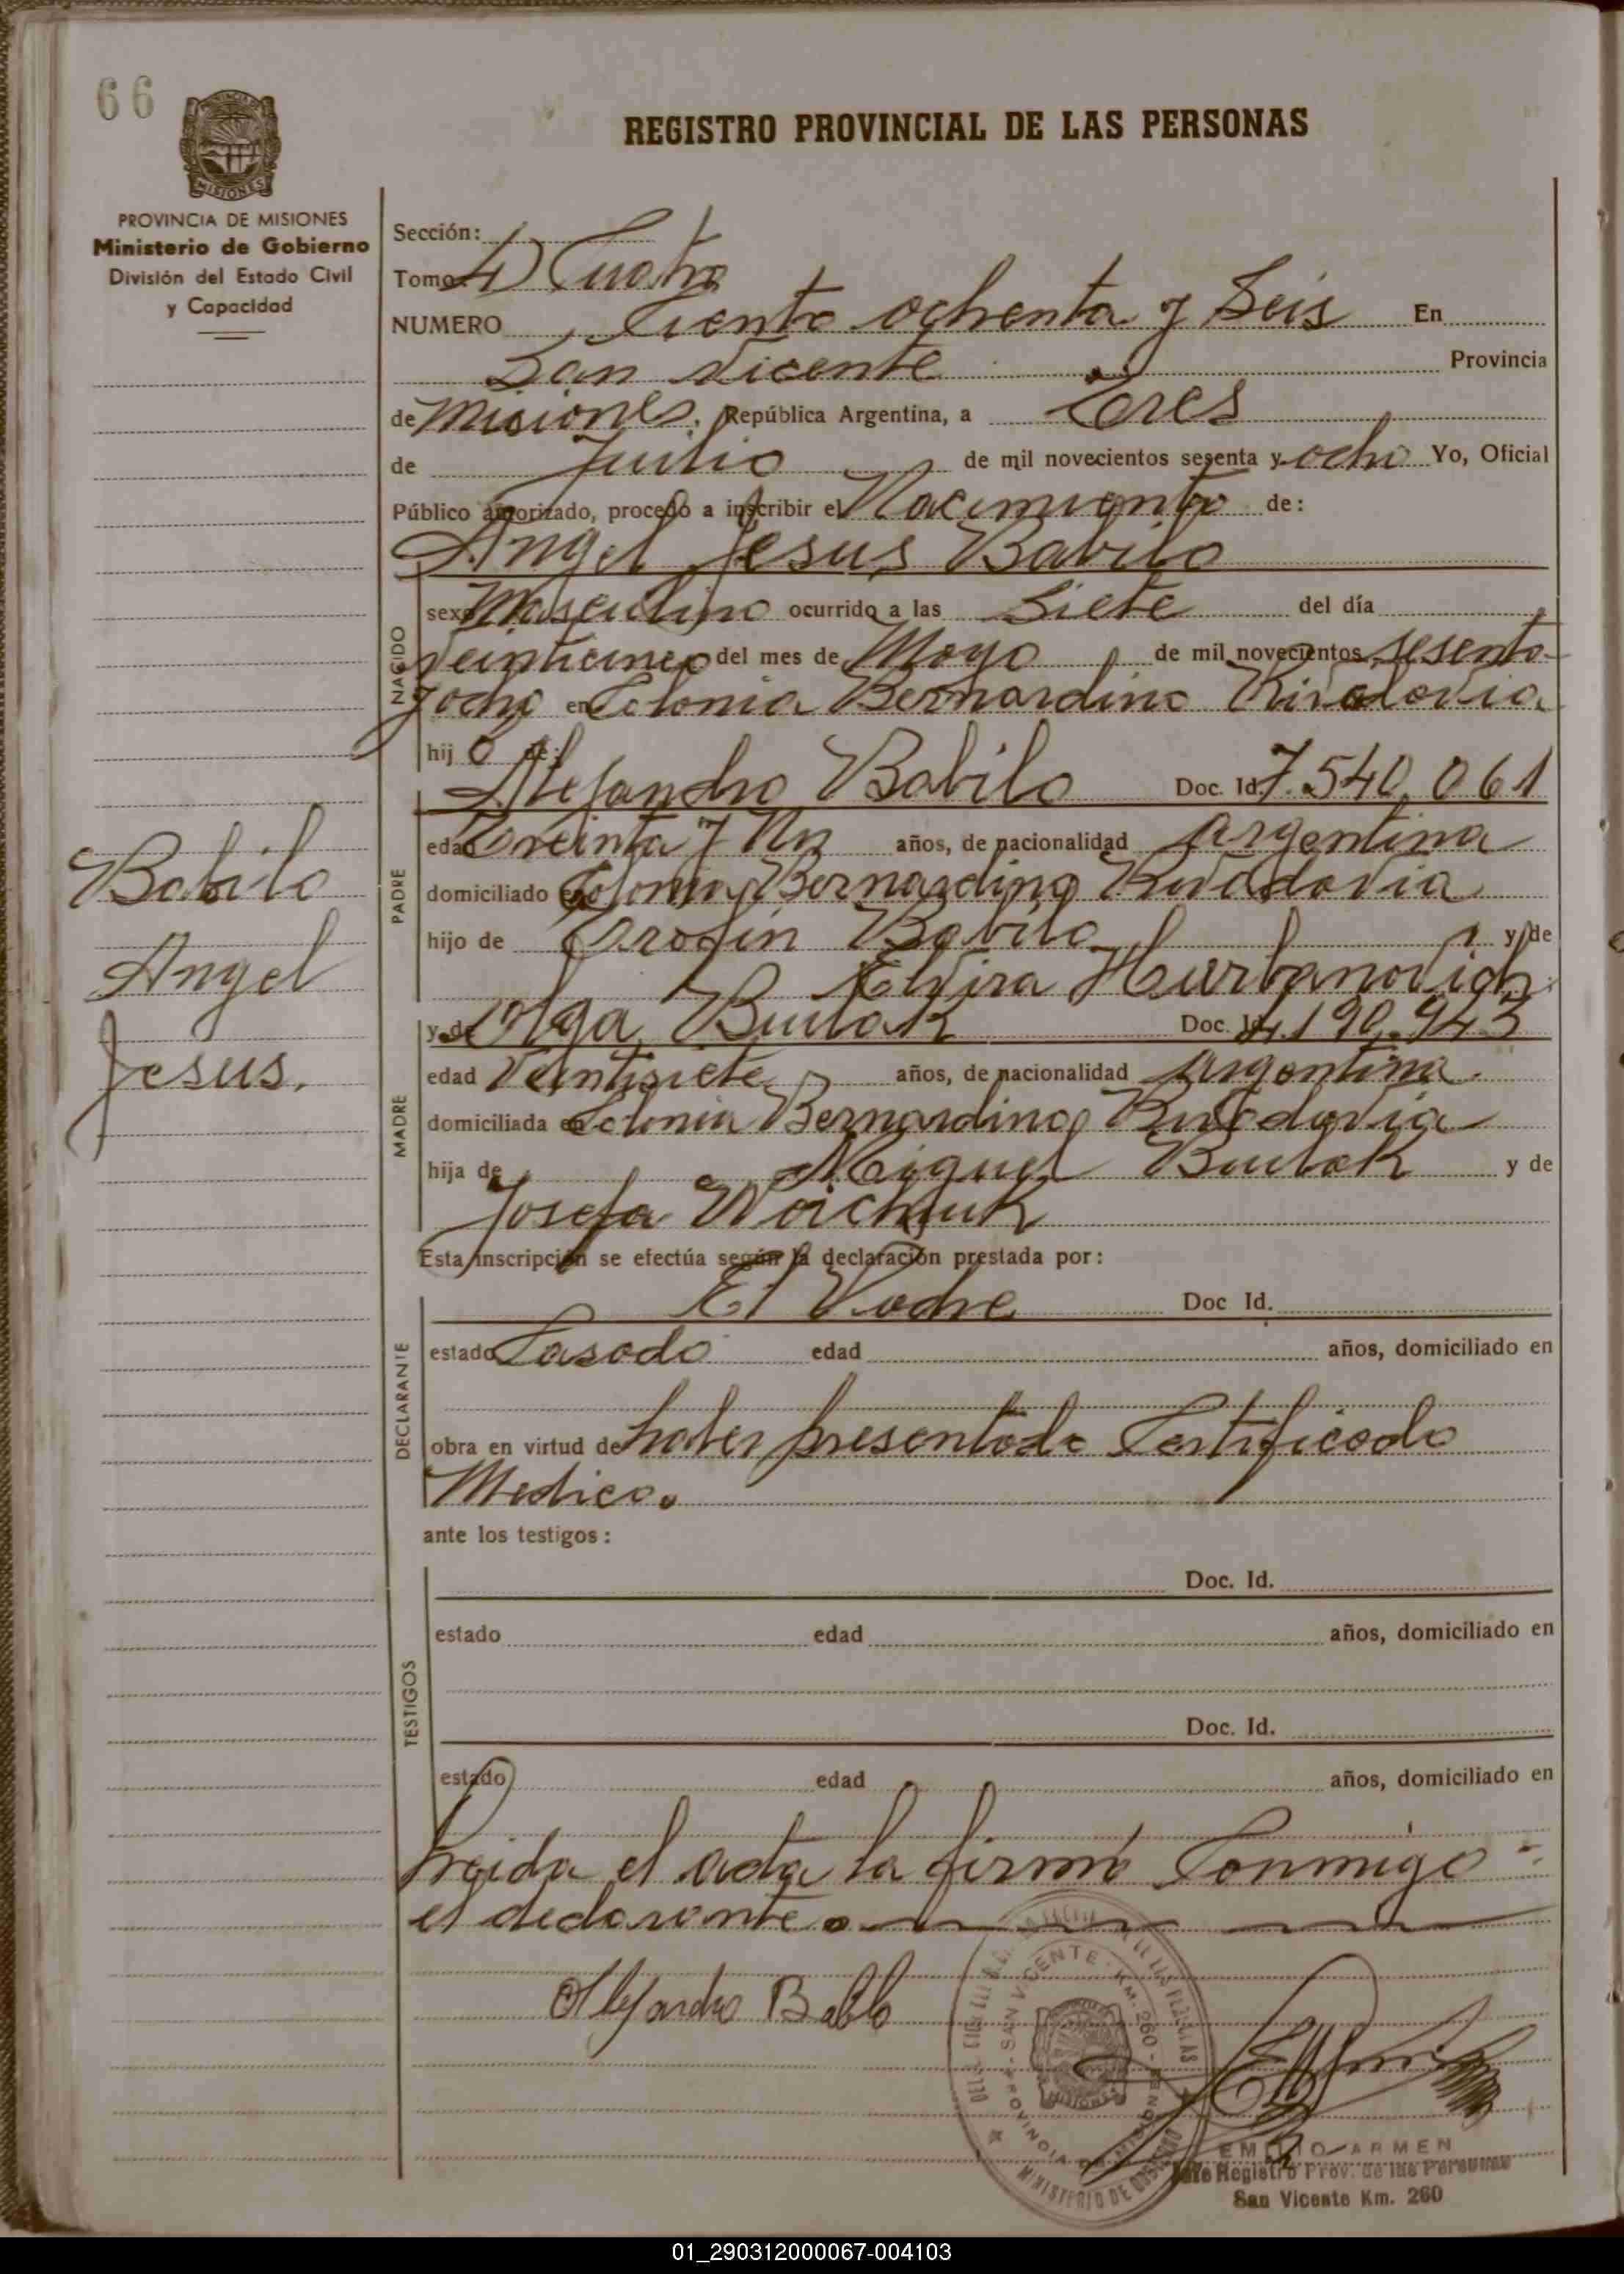 66
MISIONES
REGISTRO PROVINCIAL DE LAS PERSONAS
PROVINCIA DE MISIONES
Ministerio de Gobierno
División del Estado Civil
y Capacidad
Sección:
Tomo 4) Cuatro
NUMERO Ciento ochenta y Seis En
San Vicente Provincia
de Misiones, República Argentina, a Tres
de Julio de mil novecientos sesenta y ocho Yo, Oficial
Público autorizado, procedo a inscribir el Nacimiento de:
Angel Jesus Babilo
NACIDO
sexo Masculino ocurrido a las Siete del día
veinticinco del mes de Mayo de mil novecientos sesenta
y ocho en Colonia Bernardino Rivadavia
hij o de:
Alejandro Babilo Doc. Id. 7.540.061
PADRE
edad Treinta y Un años, de nacionalidad Argentina
domiciliado en Colonia Bernardino Rivadavia
hijo de Babilo y de
Elvira Hurbanovich
y de Olga Buiak Doc. Id. 4.190.943
MADRE
edad Veintisiete años, de nacionalidad Argentina
domiciliada en Colonia Bernardino Rivadavia
hija de Miguel Buiak y de
Josefa Woichuk
Esta inscripción se efectúa según la declaración prestada por:
El Padre Doc Id.
DECLARANTE
estado Casado edad años, domiciliado en
obra en virtud de haber presentado Certificado
Medico.
ante los testigos:
TESTIGOS
Doc. Id.
estado edad años, domiciliado en
Doc. Id.
estado edad años, domiciliado en
Leida el acta la firmó Conmigo
el declarante.
Babilo
Angel
Jesus.
Alejandro Babilo
SAN VICENTE - KM. 260
MINISTERIO DE GOBIERNO
EMILIO ARMEN
Jefe Registro Prov. de las Personas
San Vicente Km. 260
01_290312000067-004103